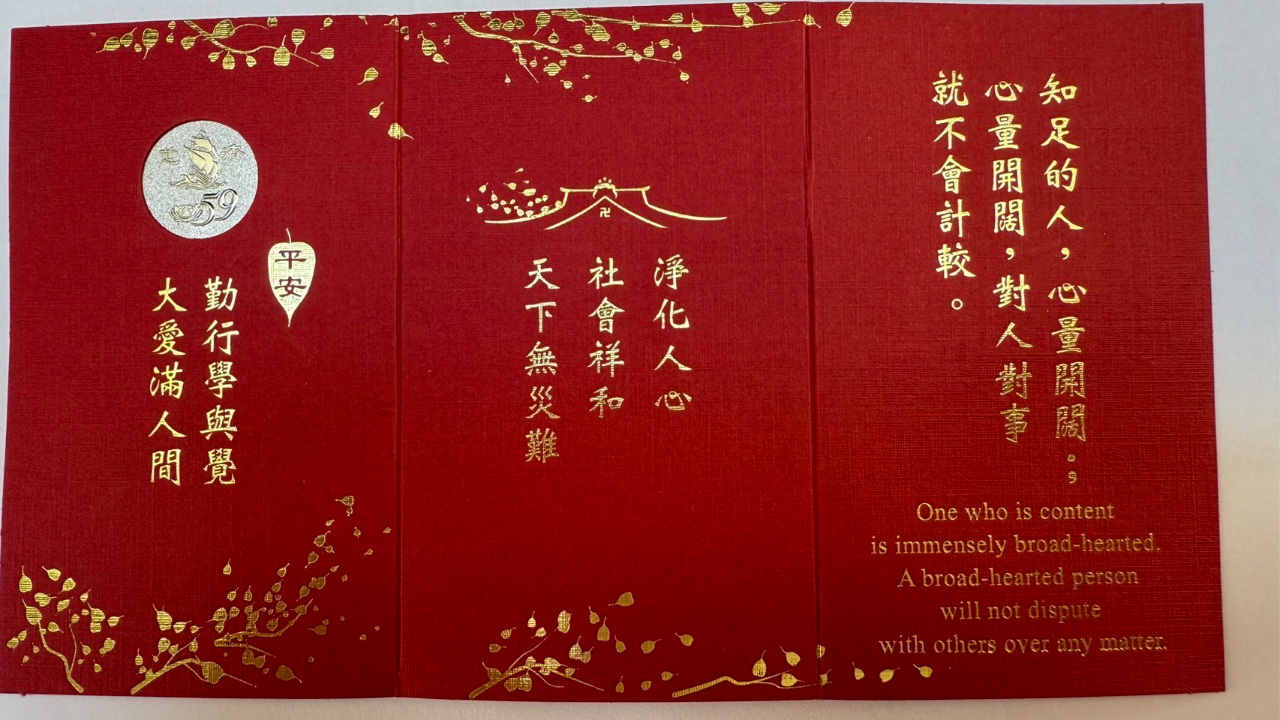 知足的人，心量開闊。；
心量開闊，對人對事
就不會計較。
One who is content
is immensely broad-hearted.
A broad-hearted person
will not dispute
with others over any matter.
淨化人心
社會祥和
天下無災難
卍
平安
勤行學與覺
大愛滿人間
59